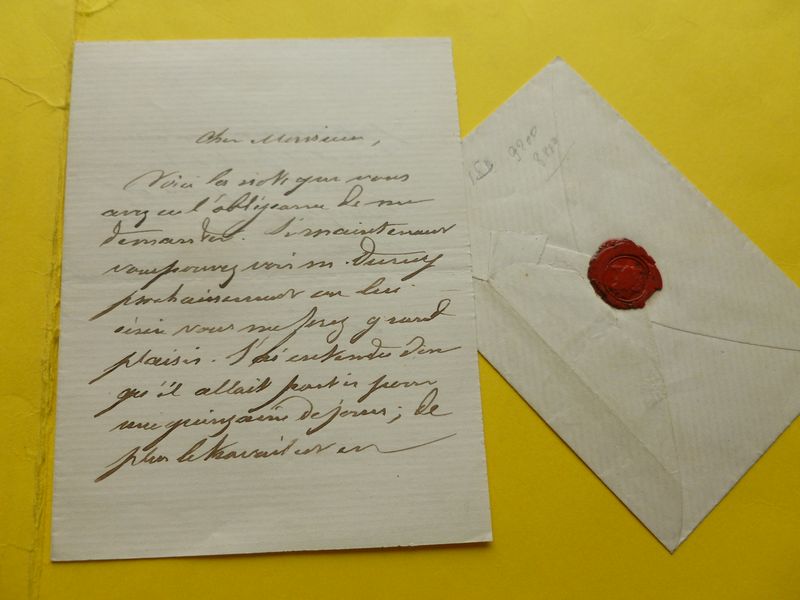 Cher Monsieur,
Voici la note que vous
avez eu l'obligeance de me
demander. Si maintenant
vous pouvez voir m. Duruy
prochainement ou lui
écrire vous me ferez grand
plaisir. J'ai entendu dire
qu'il allait partir pour
une quinzaine de jours; de
plus le travail est en